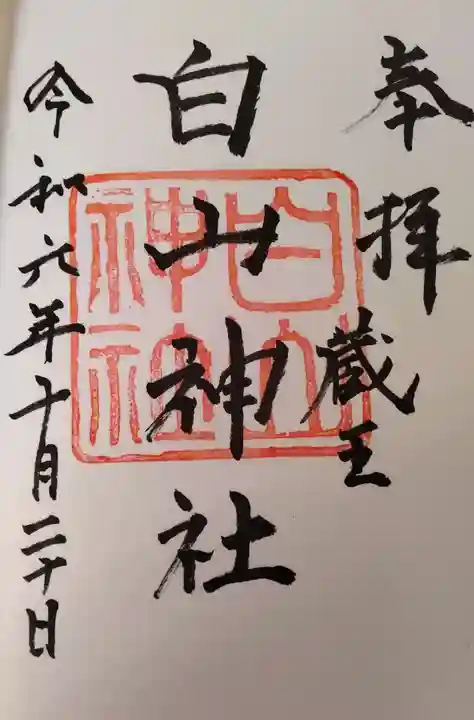 奉拝
蔵王
白山神社
白山神社
令和六年十月二十日